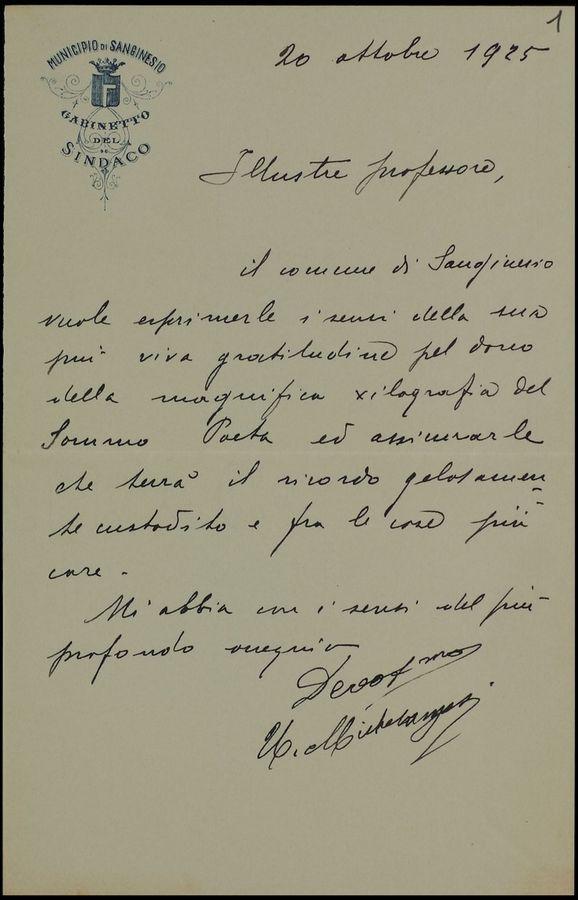 1
MUNICIPIO DI SANGINESIO
F
GABINETTO
DEL
SINDACO
20 ottobre 1925
Illustre professore,
il comune di Sanginesio
vuole esprimerle i sensi della sua
più viva gratitudine pel dono
della magnifica xilografia del
Sommo Poeta ed assicurarle
che terrà il ricordo gelosamen
te custodito e fra le cose più
care.
Mi abbia con i sensi del più
profondo ossequio
Devotmo